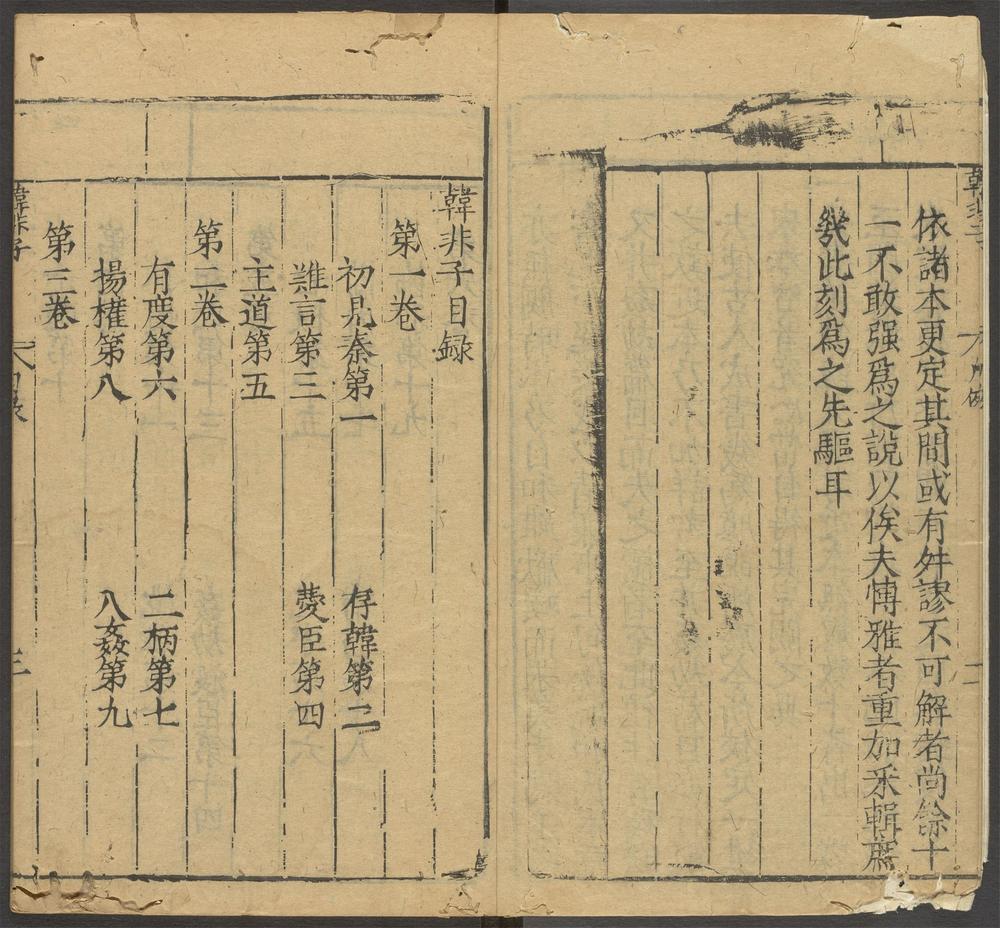 依諸本更定其間或有舛謬不可解者尚餘十
一不敢强爲之説以俟夫慱雅者重加采輯庶
㡬此刻爲之先驅耳
韓非子目録
第一卷
初見秦第一 存韓第二
難言第三 愛臣第四
主道第五
第二卷
有度第六 二柄第七
揚權第八 八姦第九
第三卷
韓非子 目録 三